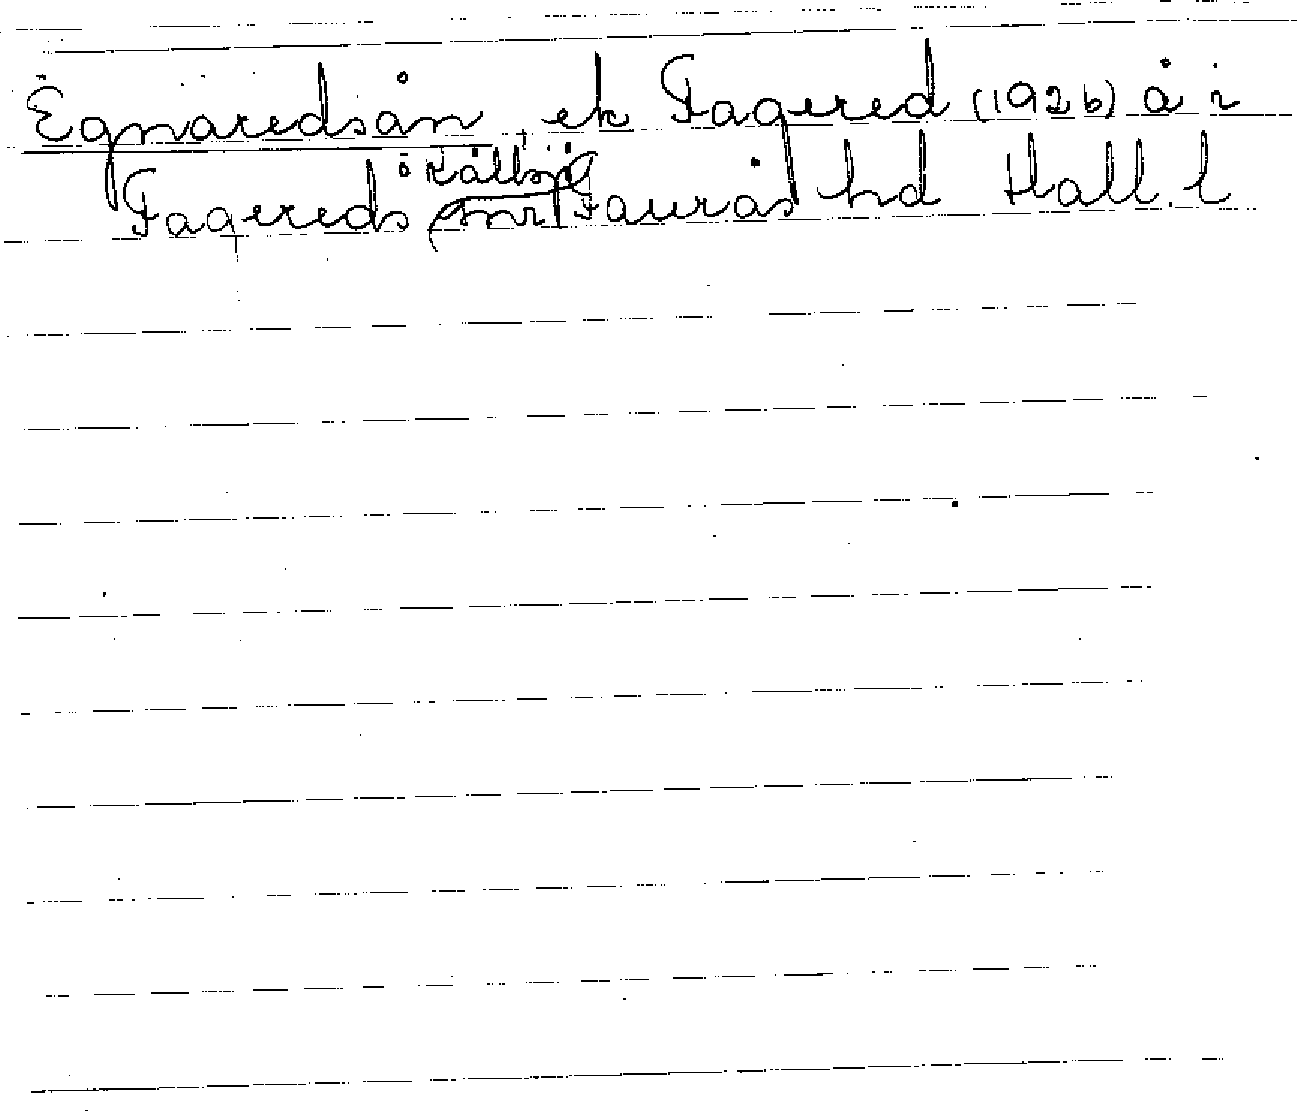 Egnaredsån, ek Fagered (1926) å i
Fagereds o Källsjö snr Faurås hd Hall. l